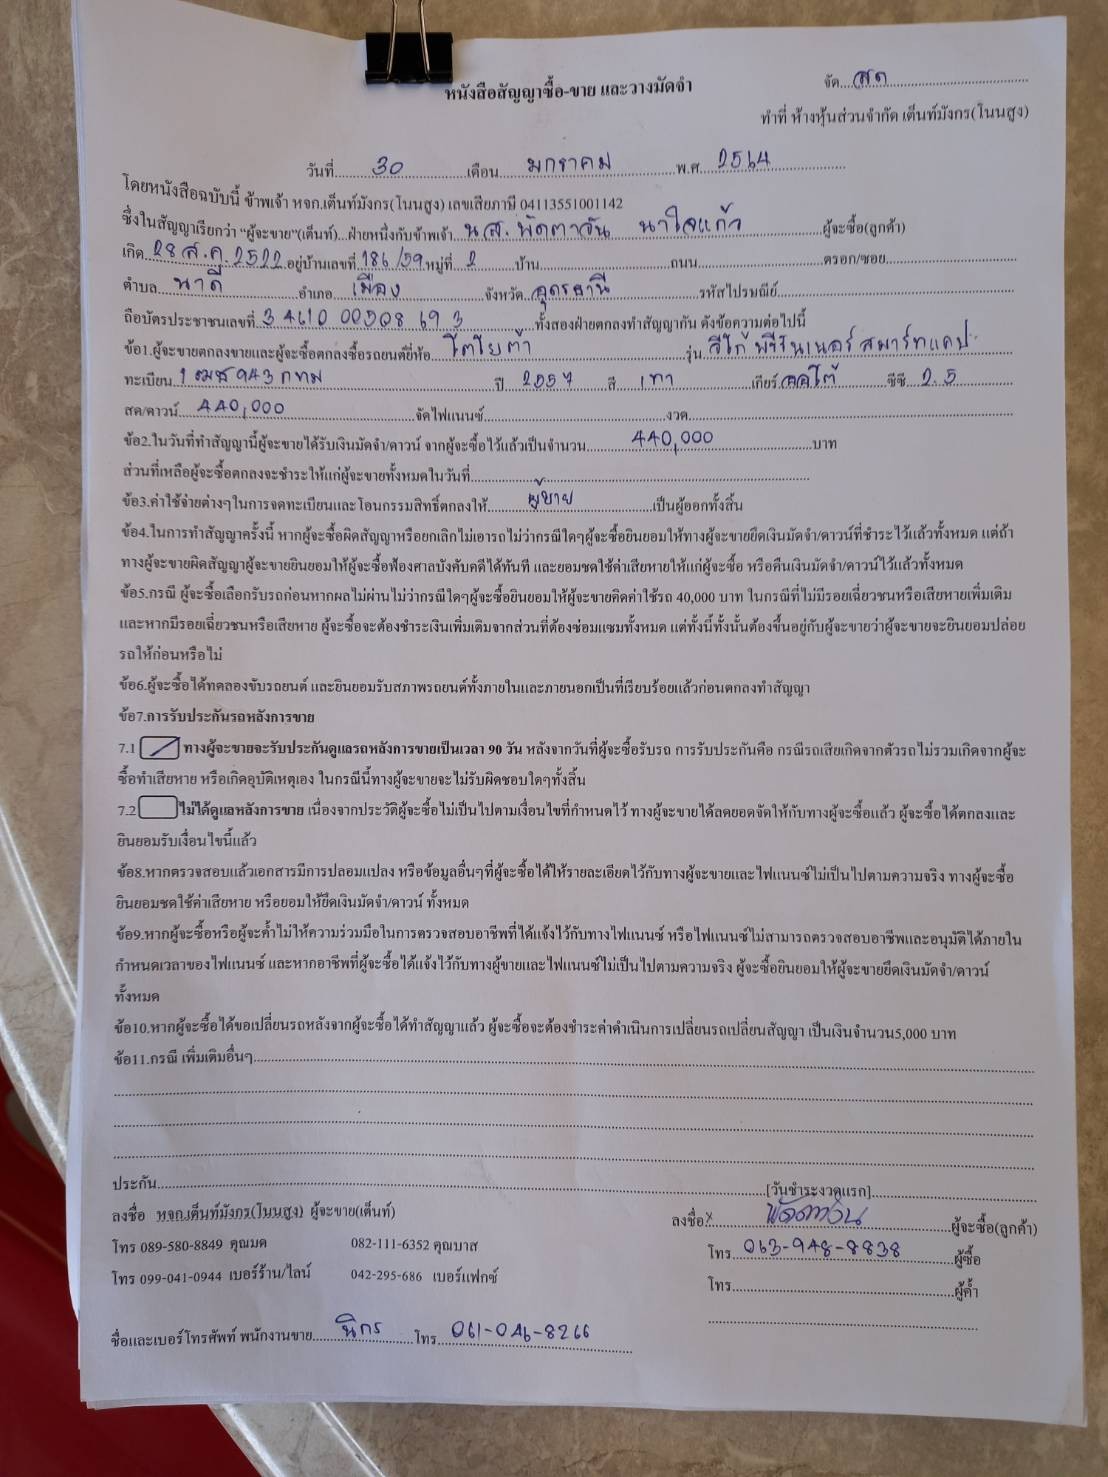 หนังสือสัญญาซื้อ-ขาย และวางมัดจำ
จัด....สด
ทำที่ ห้างหุ้นส่วนจำกัด เต็นท์มังกร(โนนสูง)
วันที่....30....เดือน....มกราคม....พ.ศ....2564
โดยหนังสือฉบับนี้ ข้าพเจ้า หจก.เต็นท์มังกร(โนนสูง) เลขเสียภาษี 04113551001142
ซึ่งในสัญญาเรียกว่า "ผู้จะขาย"(เต็นท์)...ฝ่ายหนึ่งกับข้าพเจ้า...นส. พัดตาวัน นาใจแก้ว....ผู้จะซื้อ(ลูกค้า)
เกิด..28 ส.ค. 2522..อยู่บ้านเลขที่.186/59.หมู่ที่..2....บ้าน....ถนน....ตรอก/ซอย....
ตำบล....นาดี....อำเภอ....เมือง....จังหวัด..อุดรธานี....รหัสไปรษณีย์....
ถือบัตรประชาชนเลขที่..3 4610 00508 69 3....ทั้งสองฝ่ายตกลงทำสัญญากัน ดังข้อความต่อไปนี้
ข้อ1.ผู้จะขายตกลงขายและผู้จะซื้อตกลงซื้อรถยนต์ยี่ห้อ....โตโยต้า....รุ่น..วีโก้ พรีรันเนอร์ สมาร์ทแคป
ทะเบียน.1ฒช 943 กทม....ปี....2557....สี....เทา....เกียร์.ออโต้....ซีซี....2.5
สด/ดาวน์....440,000....จัดไฟแนนซ์....งวด....
ข้อ2.ในวันที่ทำสัญญานี้ผู้จะขายได้รับเงินมัดจำ/ดาวน์ จากผู้จะซื้อไว้แล้วเป็นจำนวน....440,000....บาท
ส่วนที่เหลือผู้จะซื้อตกลงจะชำระให้แก่ผู้จะขายทั้งหมดในวันที่....
ข้อ3.ค่าใช้จ่ายต่างๆในการจดทะเบียนและโอนกรรมสิทธิ์ตกลงให้....ผู้ขาย....เป็นผู้ออกทั้งสิ้น
ข้อ4.ในการทำสัญญาครั้งนี้ หากผู้จะซื้อผิดสัญญาหรือยกเลิกไม่เอารถไม่ว่ากรณีใดๆผู้จะซื้อยินยอมให้ทางผู้จะขายยึดเงินมัดจำ/ดาวน์ที่ชำระไว้แล้วทั้งหมด แต่ถ้า
ทางผู้จะขายผิดสัญญาผู้จะขายยินยอมให้ผู้จะซื้อฟ้องศาลบังคับคดีได้ทันที และยอมชดใช้ค่าเสียหายให้แก่ผู้จะซื้อ หรือคืนเงินมัดจำ/ดาวน์ไว้แล้วทั้งหมด
ข้อ5.กรณี ผู้จะซื้อเลือกรับรถก่อนหากผลไม่ผ่านไม่ว่ากรณีใดๆผู้จะซื้อยินยอมให้ผู้จะขายคิดค่าใช้รถ 40,000 บาท ในกรณีที่ไม่มีรอยเฉี่ยวชนหรือเสียหายเพิ่มเติม
และหากมีรอยเฉี่ยวชนหรือเสียหาย ผู้จะซื้อจะต้องชำระเงินเพิ่มเติมจากส่วนที่ต้องซ่อมแซมทั้งหมด แต่ทั้งนี้ทั้งนั้นต้องขึ้นอยู่กับผู้จะขายว่าผู้จะขายจะยินยอมปล่อย
รถให้ก่อนหรือไม่
ข้อ6.ผู้จะซื้อได้ทดลองขับรถยนต์ และยินยอมรับสภาพรถยนต์ทั้งภายในและภายนอกเป็นที่เรียบร้อยแล้วก่อนตกลงทำสัญญา
ข้อ7.การรับประกันรถหลังการขาย
7.1 ทางผู้จะขายจะรับประกันดูแลรถหลังการขายเป็นเวลา 90 วัน หลังจากวันที่ผู้จะซื้อรับรถ การรับประกันคือ กรณีรถเสียเกิดจากตัวรถไม่รวมเกิดจากผู้จะ
ซื้อทำเสียหาย หรือเกิดอุบัติเหตุเอง ในกรณีนี้ทางผู้จะขายจะไม่รับผิดชอบใดๆทั้งสิ้น
7.2 ไม่ได้ดูแลหลังการขาย เนื่องจากประวัติผู้จะซื้อไม่เป็นไปตามเงื่อนไขที่กำหนดไว้ ทางผู้จะขายได้ลดยอดจัดให้กับทางผู้จะซื้อแล้ว ผู้จะซื้อได้ตกลงและ
ยินยอมรับเงื่อนไขนี้แล้ว
ข้อ8.หากตรวจสอบแล้วเอกสารมีการปลอมแปลง หรือข้อมูลอื่นๆที่ผู้จะซื้อได้ให้รายละเอียดไว้กับทางผู้จะขายและไฟแนนซ์ไม่เป็นไปตามความจริง ทางผู้จะซื้อ
ยินยอมชดใช้ค่าเสียหาย หรือยอมให้ยึดเงินมัดจำ/ดาวน์ ทั้งหมด
ข้อ9.หากผู้จะซื้อหรือผู้จะค้ำไม่ให้ความร่วมมือในการตรวจสอบอาชีพที่ได้แจ้งไว้กับทางไฟแนนซ์ หรือไฟแนนซ์ไม่สามารถตรวจสอบอาชีพและอนุมัติได้ภายใน
กำหนดเวลาของไฟแนนซ์ และหากอาชีพที่ผู้จะซื้อได้แจ้งไว้กับทางผู้ขายและไฟแนนซ์ไม่เป็นไปตามความจริง ผู้จะซื้อยินยอมให้ผู้จะขายยึดเงินมัดจำ/ดาวน์
ทั้งหมด
ข้อ10.หากผู้จะซื้อได้ขอเปลี่ยนรถหลังจากผู้จะซื้อได้ทำสัญญาแล้ว ผู้จะซื้อจะต้องชำระค่าดำเนินการเปลี่ยนรถเปลี่ยนสัญญา เป็นเงินจำนวน5,000 บาท
ข้อ11.กรณี เพิ่มเติมอื่นๆ....
ประกัน....[วันชำระงวดแรก]....
ลงชื่อ หจก.เต็นท์มังกร(โนนสูง) ผู้จะขาย(เต็นท์)
ลงชื่อx....พัดตาวัน....ผู้จะซื้อ(ลูกค้า)
โทร 089-580-8849 คุณมด 082-111-6352 คุณบาส
โทร..063-948-8838....ผู้ซื้อ
โทร 099-041-0944 เบอร์ร้าน/ไลน์ 042-295-686 เบอร์แฟกซ์
โทร....ผู้ค้ำ
ชื่อและเบอร์โทรศัพท์ พนักงานขาย....นิกร....โทร..061-046-8266